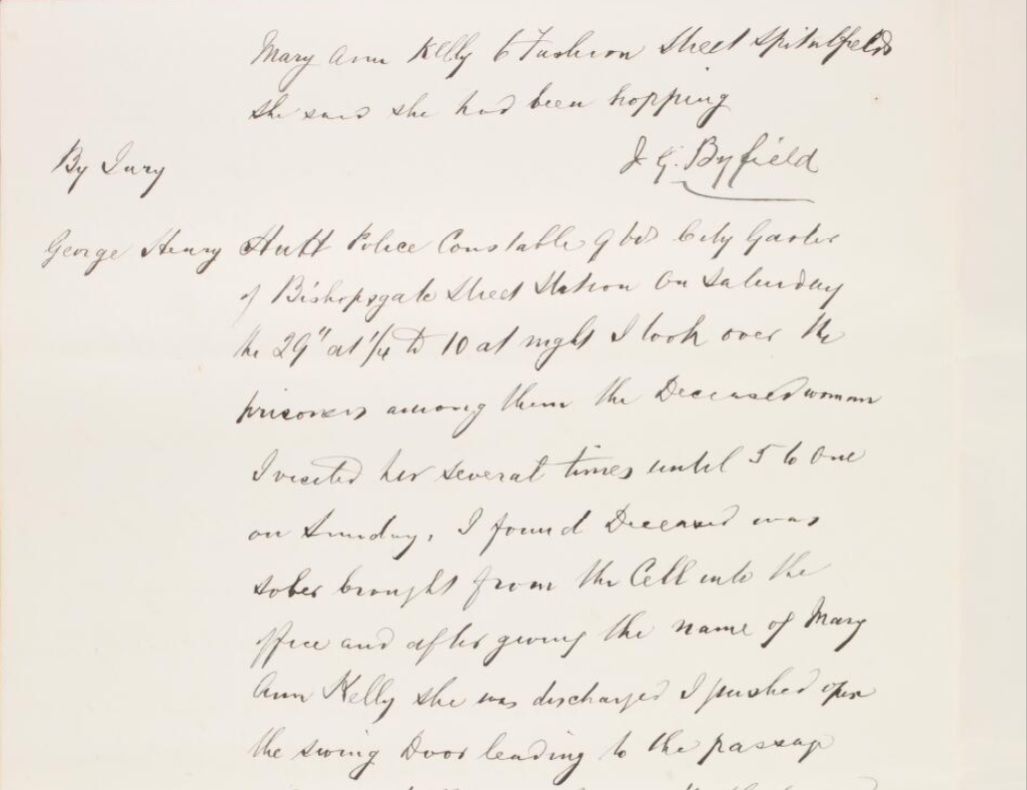 Mary Ann Kelly 6 Fashion Street Spitalfields
she said she had been hopping
J G. Byfield
By Jury
George Henry Hutt Police Constable 968 City Gaoler
of Bishopsgate Street Station On Saturday
the 29" at 1/4 to 10 at night I took over the
prisoners among them the Deceased woman
I visited her several times until 5 to One
on Sunday, I found Deceased was
sober brought from the Cell into the
office and after giving the name of Mary
Ann Kelly she was discharged I pushed open
the swing Door leading to the passage